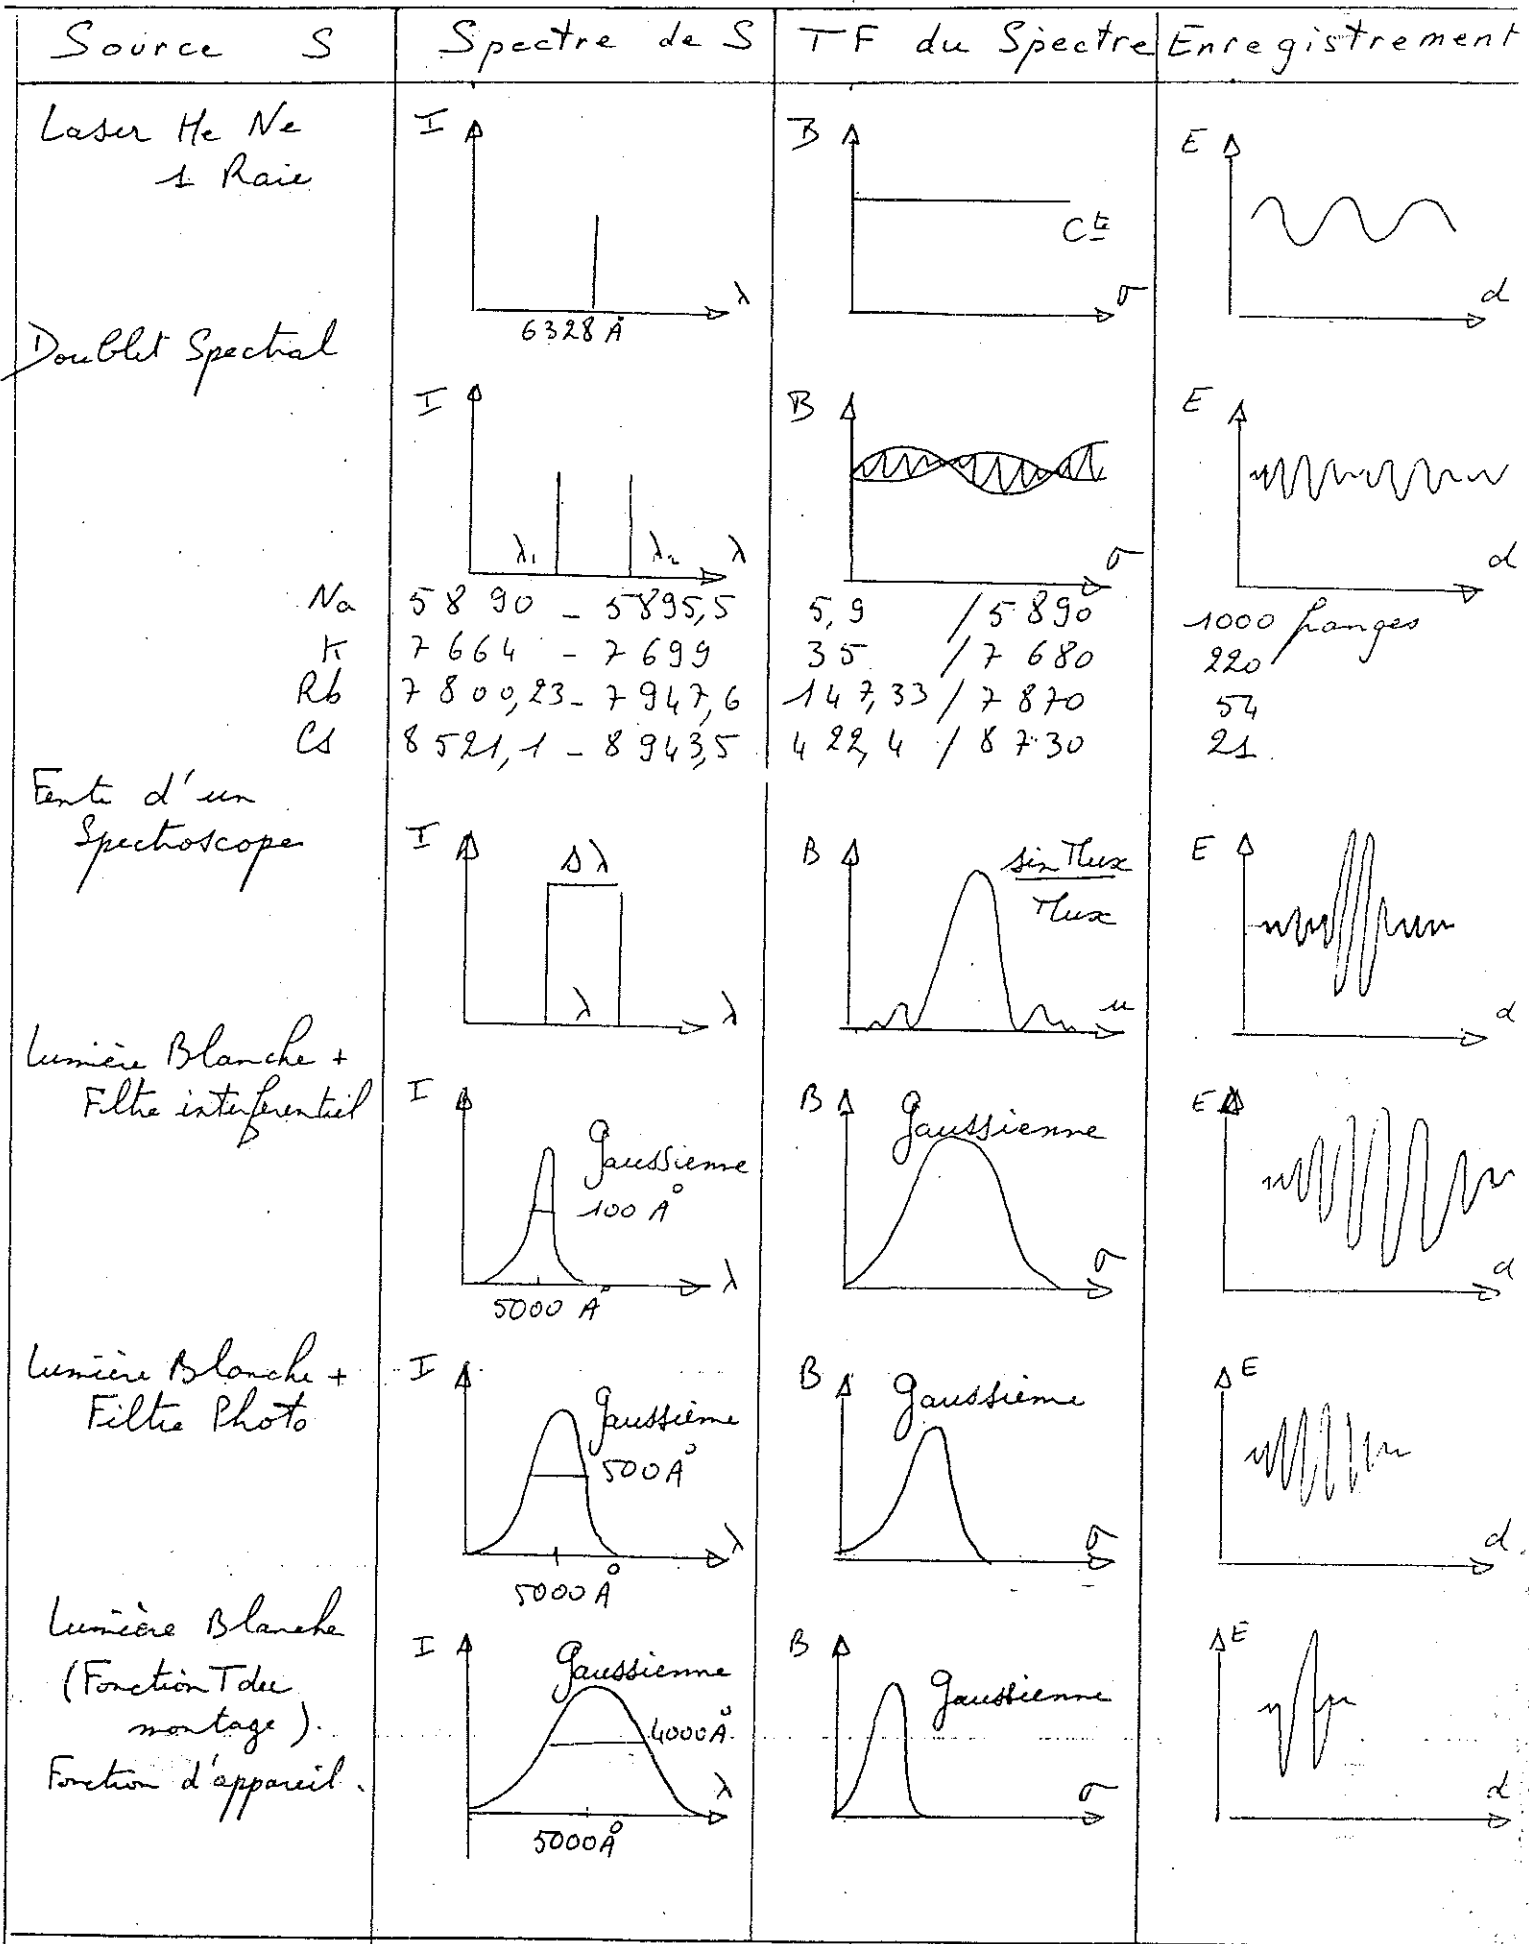 Source S | Spectre de S | TF du Spectre | Enregistrement
Laser He Ne
1 Raie
I
λ
6328 Å
B
Cte
σ
E
d
Doublet Spectral
I
λ1 λ2 λ
B
σ
E
d
Na 5890 - 5895,5 5,9 / 5890 1000 franges
K 7664 - 7699 35 / 7680 220
Rb 7800,23 - 7947,6 147,33 / 7870 54
Cs 8521,1 - 8943,5 422,4 / 8730 21
Fente d'un
Spectroscope
I
Δλ
λ
λ
B
sin πux
πux
u
E
d
Lumière Blanche +
Filtre interferentiel
I
Gaussienne
100 Å
λ
5000 Å
B
Gaussienne
σ
E
d
Lumière Blanche +
Filtre Photo
I
Gaussienne
500 Å
λ
5000 Å
B
Gaussienne
σ
E
d
Lumière Blanche
(Fonction T du
montage).
Fonction d'appareil.
I
Gaussienne
4000 Å
λ
5000 Å
B
Gaussienne
σ
E
d